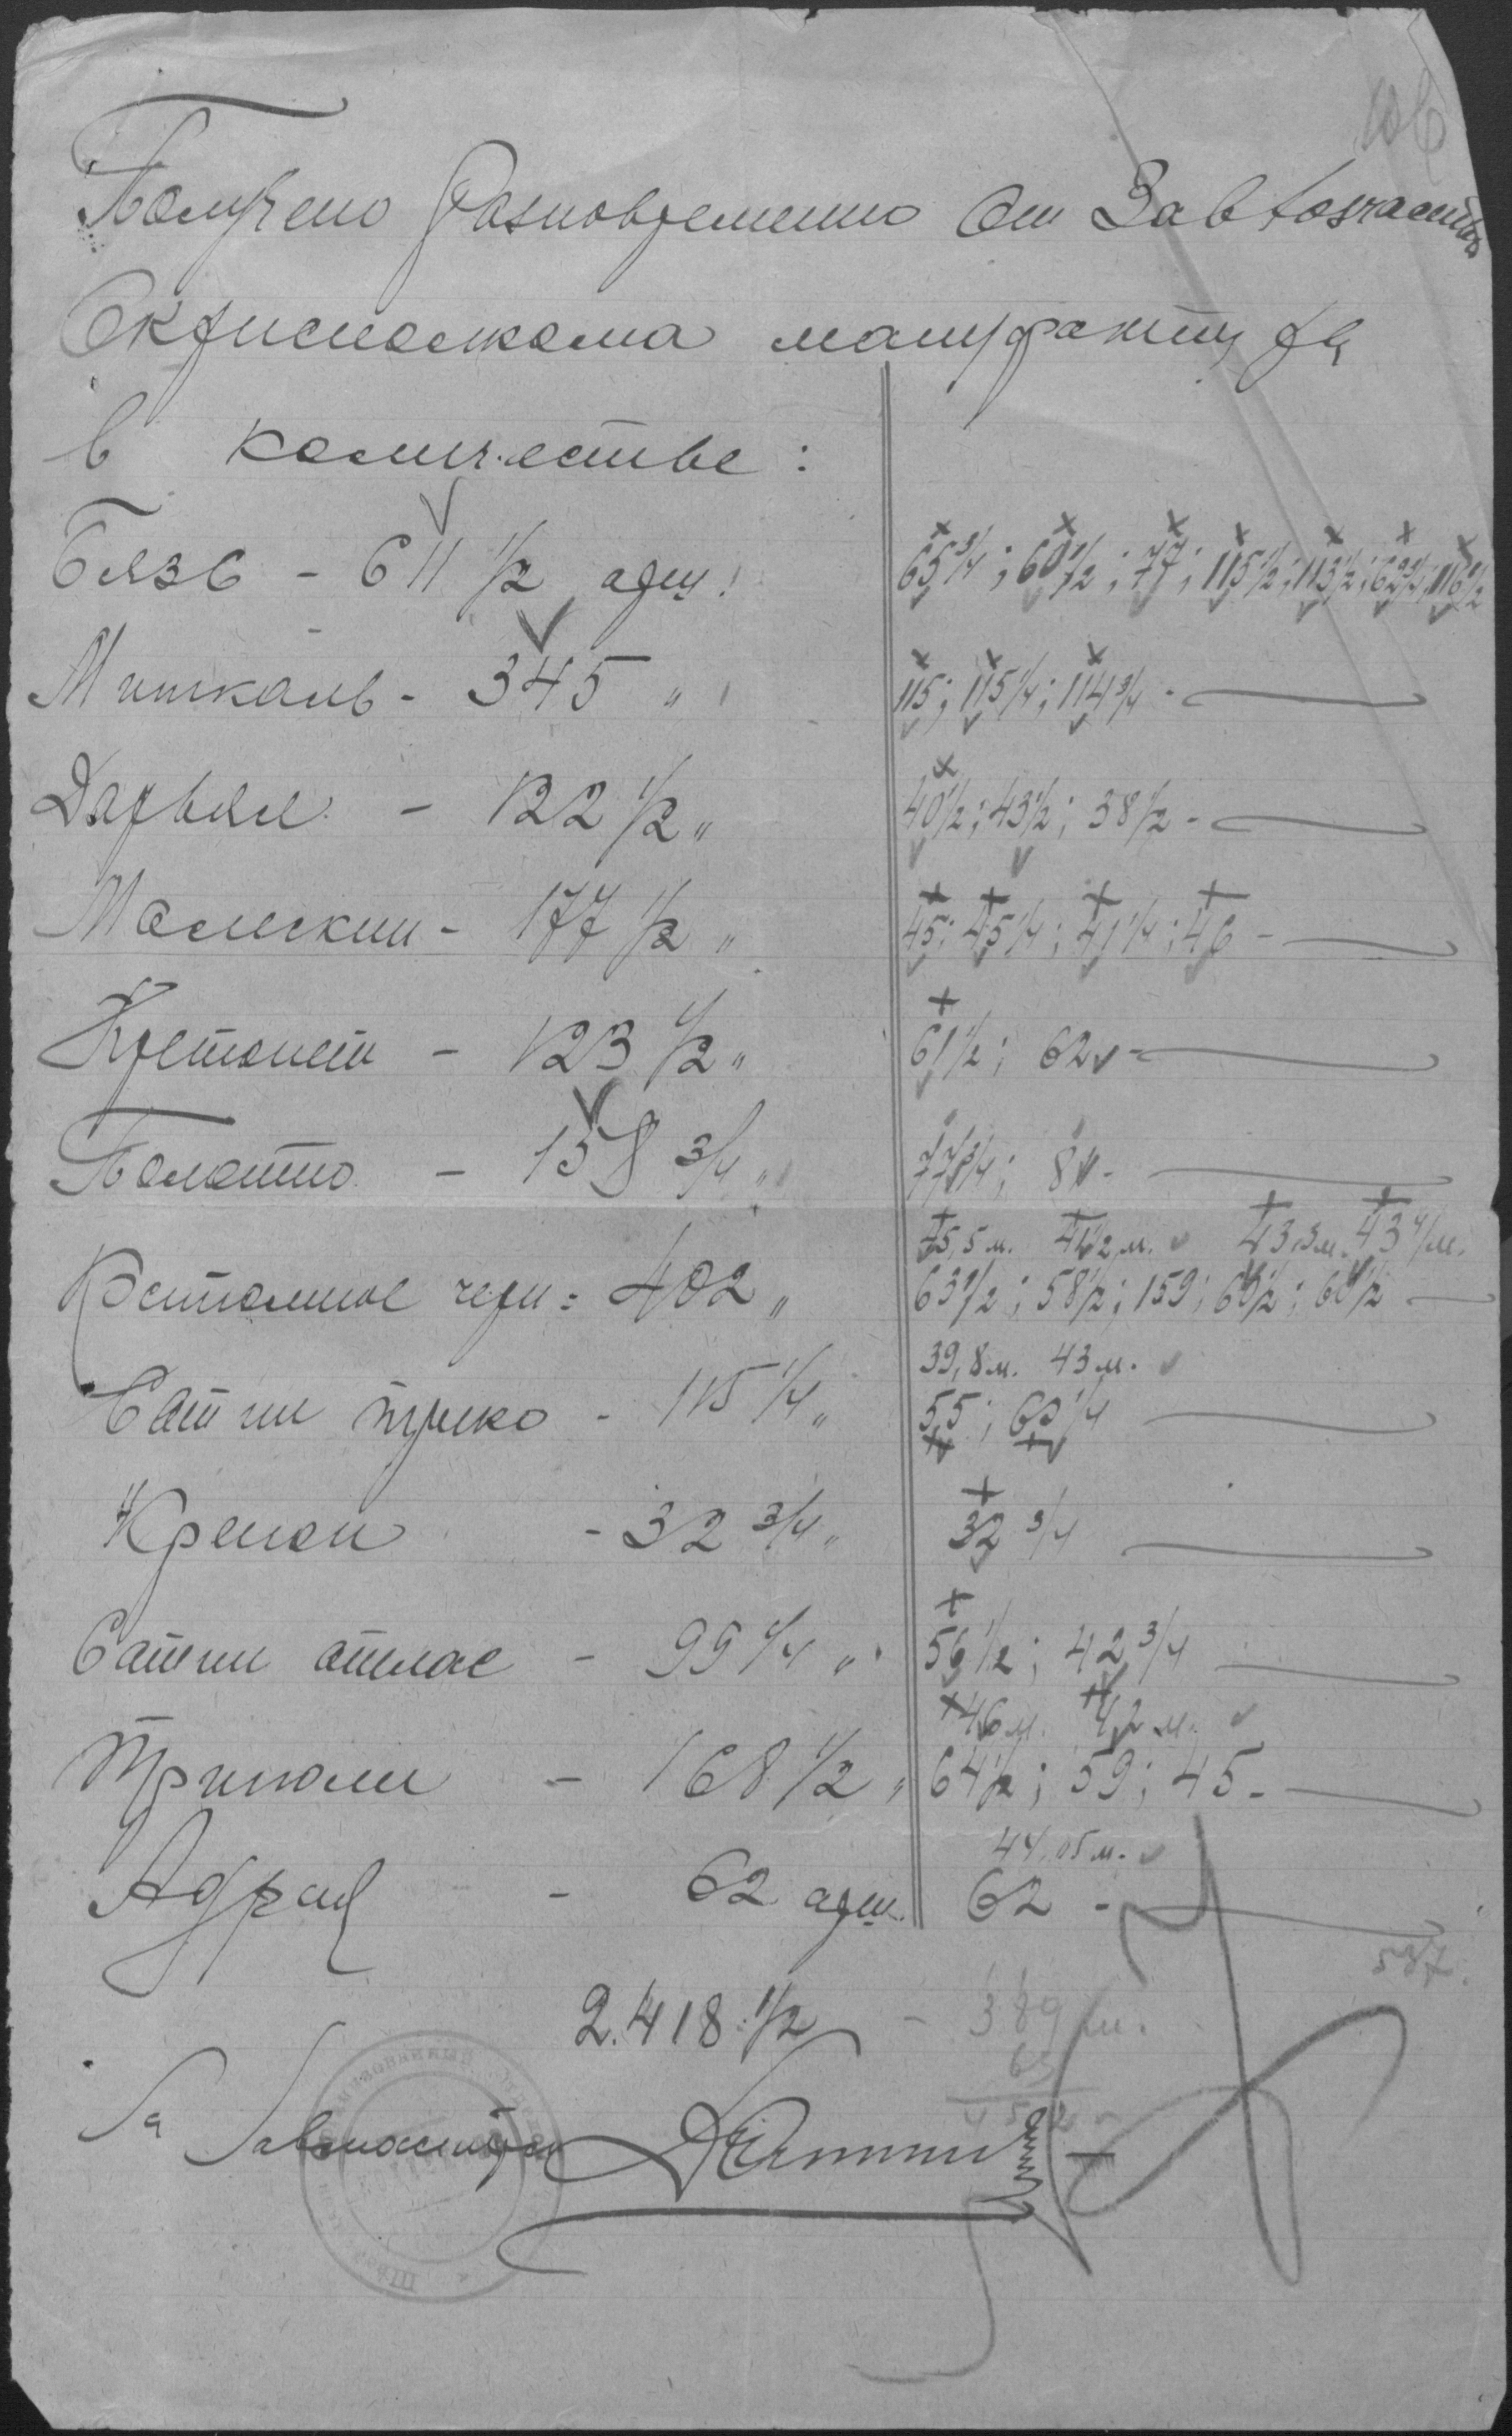 Получено разновременно от Завхозчастью
Окрисполкома мануфактура
в количестве:
Бязь - 611 1/2 арш. 65 3/4; 60 1/2; 77; 115 1/2; 113 1/2; 62 3/4; 116 1/2
Миткаль - 345 " 115; 115 1/4; 114 3/4 -
Дарьял - 122 1/2 " 40 1/2; 43 1/2; 38 1/2 -
Молескин - 177 1/2 " 45; 45 1/4; 41 1/4; 46 -
Кретонет - 123 1/2 " 61 1/2; 62 -
Полотно - 158 3/4 " 77 3/4; 81 -
45,5 м. 41 1/2 м. 43,3 м. 43 м.
Костюмное черн = 402 " 63 1/2; 58 1/2; 159; 60 1/2; 60 1/2
39,8 м. 43 м.
Сатин трико - 115 1/4 " 55; 60 1/4
Крепон - 32 3/4 " 32 3/4
Сатин атлас - 99 1/4 " 56 1/2; 42 3/4
46 м. 42 м.
Триполи - 168 1/2 " 64 1/2; 59; 45 -
44,05 м.
Адрац - 62 арш. 62 -
587.
2.418 1/2 - 389 м.
63
452
За